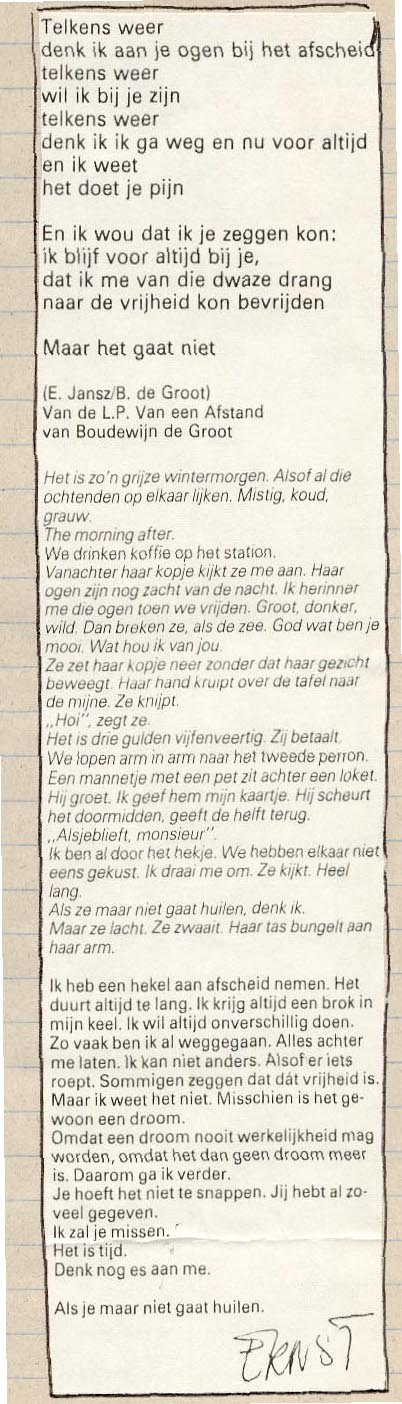 Telkens weer
denk ik aan je ogen bij het afscheid
telkens weer
wil ik bij je zijn
telkens weer
denk ik ik ga weg en nu voor altijd
en ik weet
het doet je pijn

En ik wou dat ik je zeggen kon:
ik blijf voor altijd bij je,
dat ik me van die dwaze drang
naar de vrijheid kon bevrijden

Maar het gaat niet

(E. Jansz/B. de Groot)
Van de L.P. Van een Afstand
van Boudewijn de Groot

Het is zo'n grijze wintermorgen. Alsof al die
ochtenden op elkaar lijken. Mistig, koud,
grauw.
The morning after.
We drinken koffie op het station.
Vanachter haar kopje kijkt ze me aan. Haar
ogen zijn nog zacht van de nacht. Ik herinner
me die ogen toen we vrijden. Groot, donker,
wild. Dan breken ze, als de zee. God wat ben je
mooi. Wat hou ik van jou.
Ze zet haar kopje neer zonder dat haar gezicht
beweegt. Haar hand kruipt over de tafel naar
de mijne. Ze knijpt.
„Hoi", zegt ze.
Het is drie gulden vijfenveertig. Zij betaalt.
We lopen arm in arm naar het tweede perron.
Een mannetje met een pet zit achter een loket.
Hij groet. Ik geef hem mijn kaartje. Hij scheurt
het doormidden, geeft de helft terug.
„Alsjeblieft, monsieur".
Ik ben al door het hekje. We hebben elkaar niet
eens gekust. Ik draai me om. Ze kijkt. Heel
lang.
Als ze maar niet gaat huilen, denk ik.
Maar ze lacht. Ze zwaait. Haar tas bungelt aan
haar arm.

Ik heb een hekel aan afscheid nemen. Het
duurt altijd te lang. Ik krijg altijd een brok in
mijn keel. Ik wil altijd onverschillig doen.
Zo vaak ben ik al weggegaan. Alles achter
me laten. Ik kan niet anders. Alsof er iets
roept. Sommigen zeggen dat dát vrijheid is.
Maar ik weet het niet. Misschien is het ge-
woon een droom.
Omdat een droom nooit werkelijkheid mag
worden, omdat het dan geen droom meer
is. Daarom ga ik verder.
Je hoeft het niet te snappen. Jij hebt al zo-
veel gegeven.
Ik zal je missen.
Het is tijd.
Denk nog es aan me.

Als je maar niet gaat huilen.
ERNST